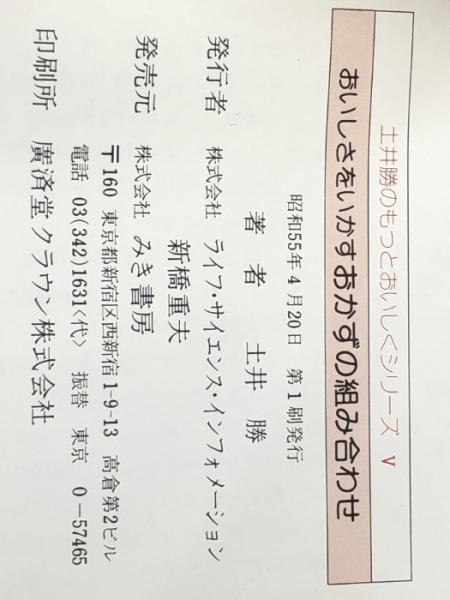 土井勝のもっとおいしくシリーズ V
おいしさをいかすおかずの組み合わせ
昭和55年4月20日 第1刷発行
著者 土井勝
発行者 株式会社 ライフ・サイエンス・インフォメーション
新橋重夫
発売元 株式会社 みき書房
〒160 東京都新宿区西新宿1-9-13 高倉第2ビル
電話 03(342)1631〈代〉 振替 東京 0-57465
印刷所 廣済堂クラウン株式会社